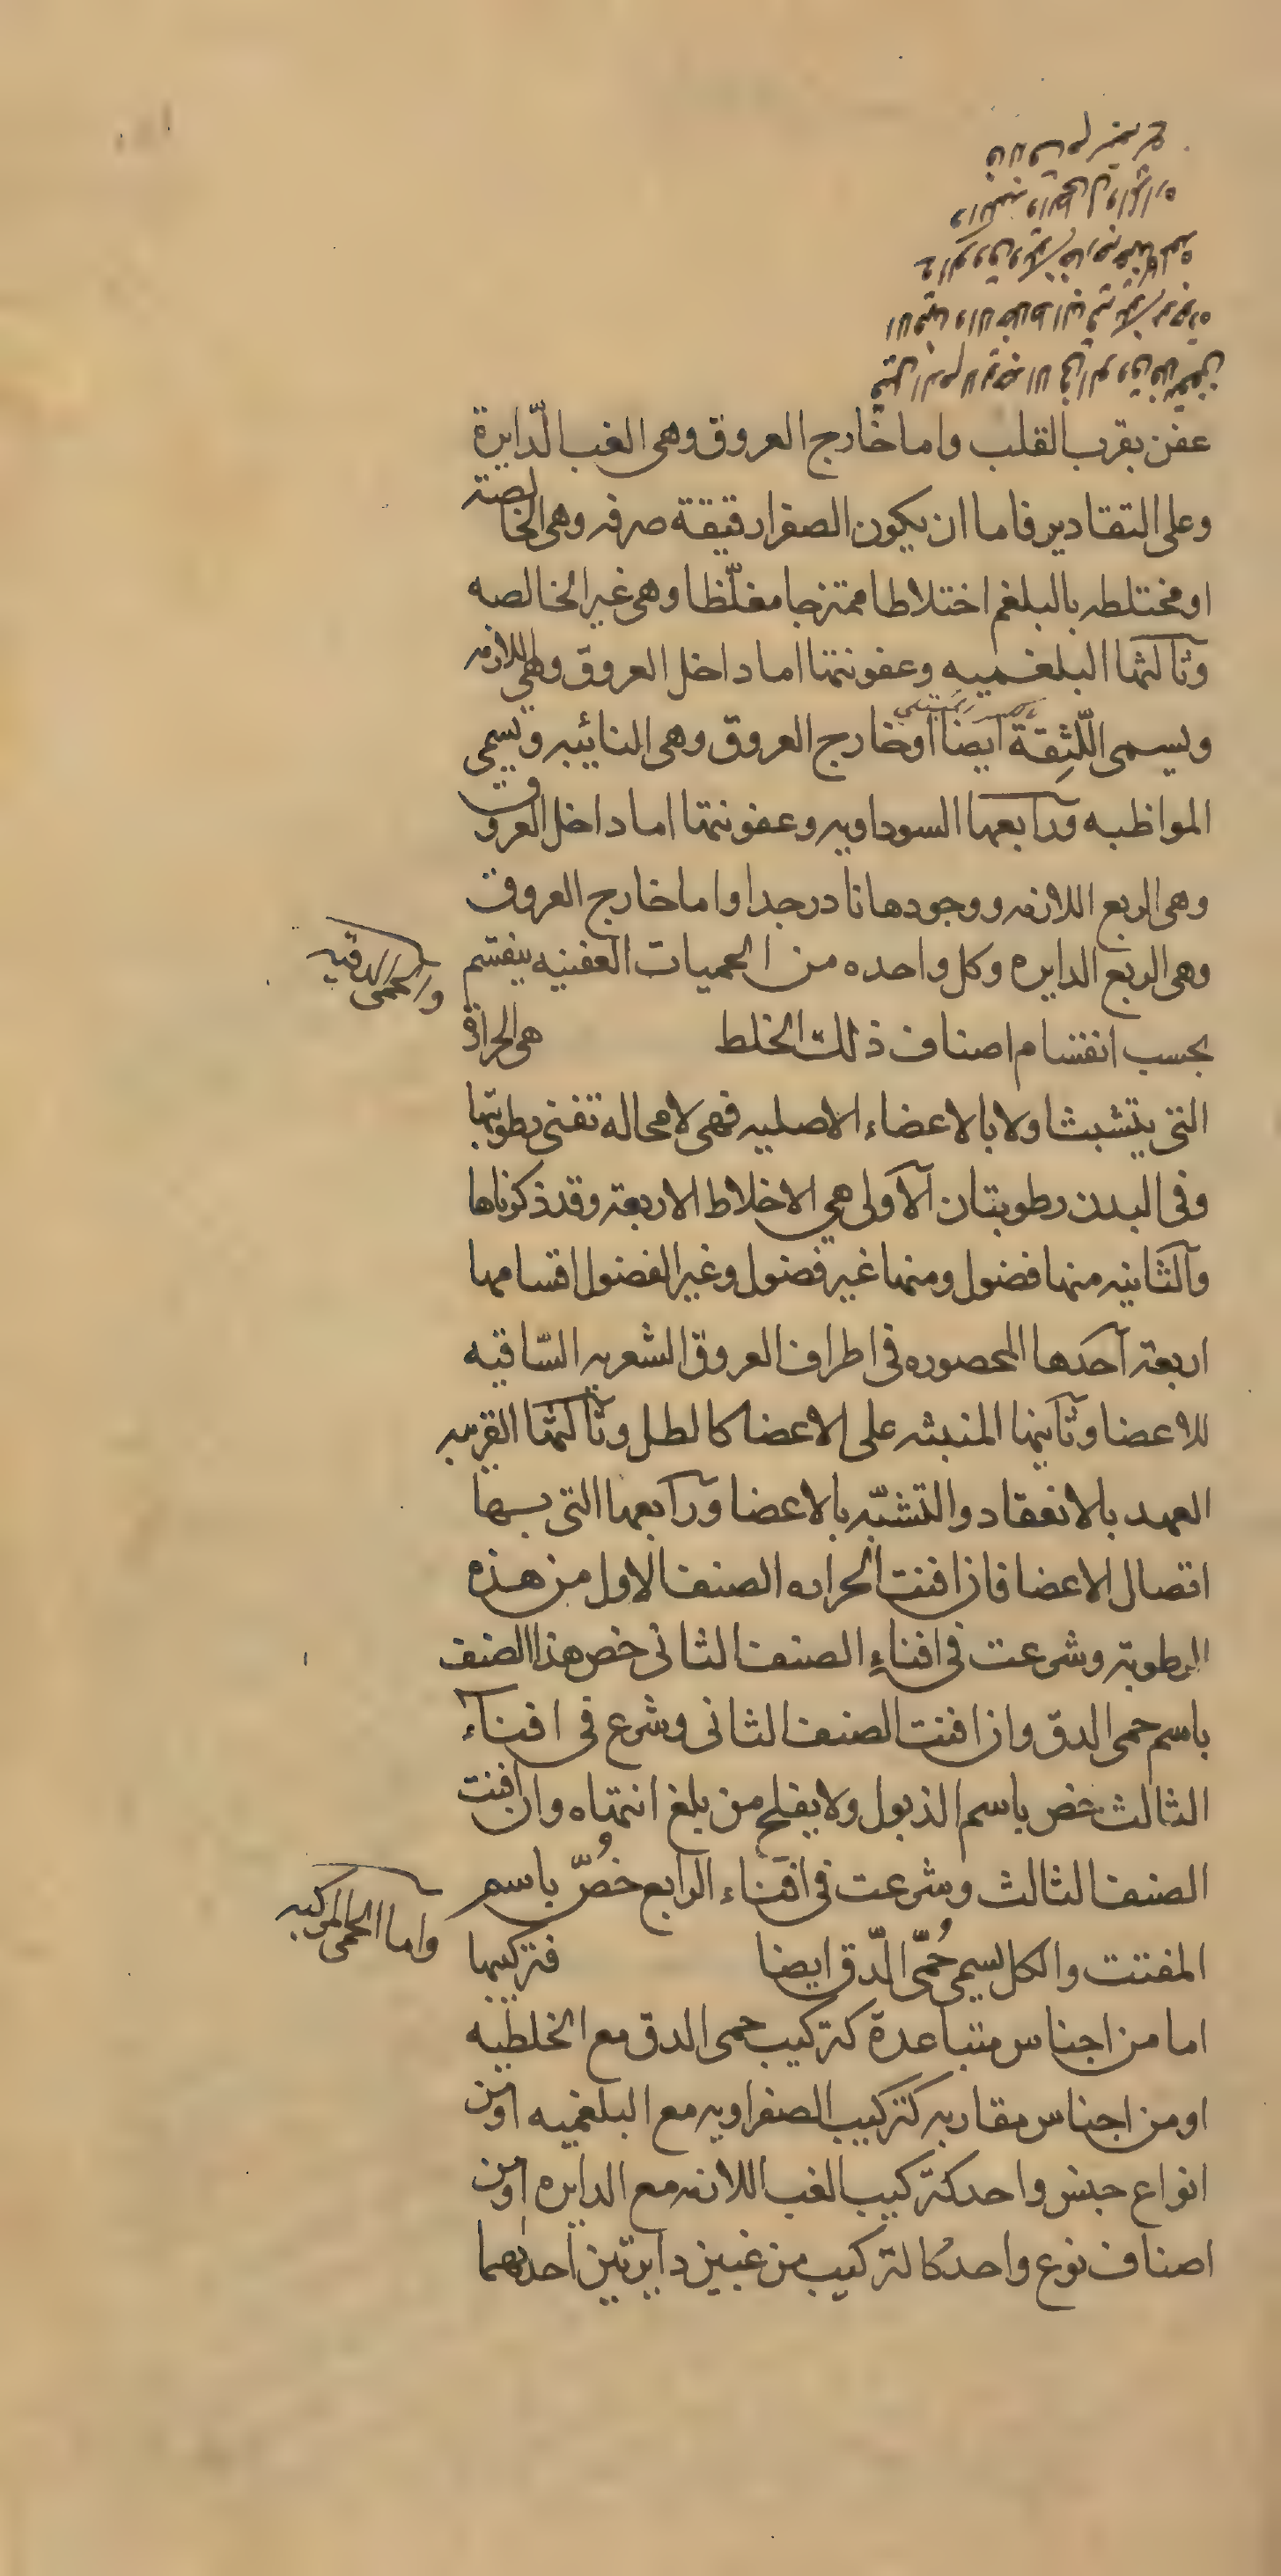 عفن بقرب القلب واما خارج العروق وهى الغب الدّايرة
وعلى التقادير فاما ان يكون الصفرا رقيقة صرفه وهى الخالصة
او مختلطه بالبلغم اختلاطا ممتزجا مغلّظا وهى غير الخالصه
وثالثها البلغميه وعفونتها اما داخل العروق وهى اللازمه
ويسمى اللّثِقة ايضا اوخارج العروق وهى النائبه ويسمى
المواظبه ورابعها السوداويه وعفونتها اما داخل العروق
وهى الربع اللازمه ووجودها نادر جدا واما خارج العروق
وهى الربع الدايره وكل واحده من الحميات العفنيه ينقسم
بحسب انقسام اصناف ذلك الخلط
والحمى الدقيه
هى الحرارة
التى يتشبث اولا بالاعضاء الاصليه فهى لا محاله تفنى رطوبتها
وفى البدن رطوبتان الآولى هى الاخلاط الاربعة وقد ذكرناها
وآلثانيه منها فضول ومنها غير فضول وغير الفضول اقسامها
اربعة آحدها المحصوره فى اطراف العروق الشعريه السّاقيه
للاعضا وثانيها المنبثه على الاعضا كالطل وثالثها القريبه
العهد بالانعقاد والتشبّه بالاعضا ورابعها التى بها
اتصال الاعضا فان افنت الحراره الصنف الاول من هذه
الرطوبة وشرعت فى افناءِ الصنف الثانى خص هذا الصنف
باسم حمى الدق وان افنت الصنف الثانى وشرع فى افناء
الثالث خص باسم الذبول ولا يفلح من بلغ انتهاه وان افنت
الصنف الثالث وشرعت فى افناء الرابع خُصّ باسم
المفتت والكل يسمى حُمّى الدّق ايضا
واما الحمى المركبه
فتركيبها
اما من اجناس متباعدة كتركيب حمى الدق مع الخلطيه
او من اجناس مقاربه كتركيب الصفراويه مع البلغميه او من
انواع جنس واحد كتركيب الغب اللازمه مع الدايره او من
اصناف نوع واحد كالتركيب من غبين دايرتين احدىهما